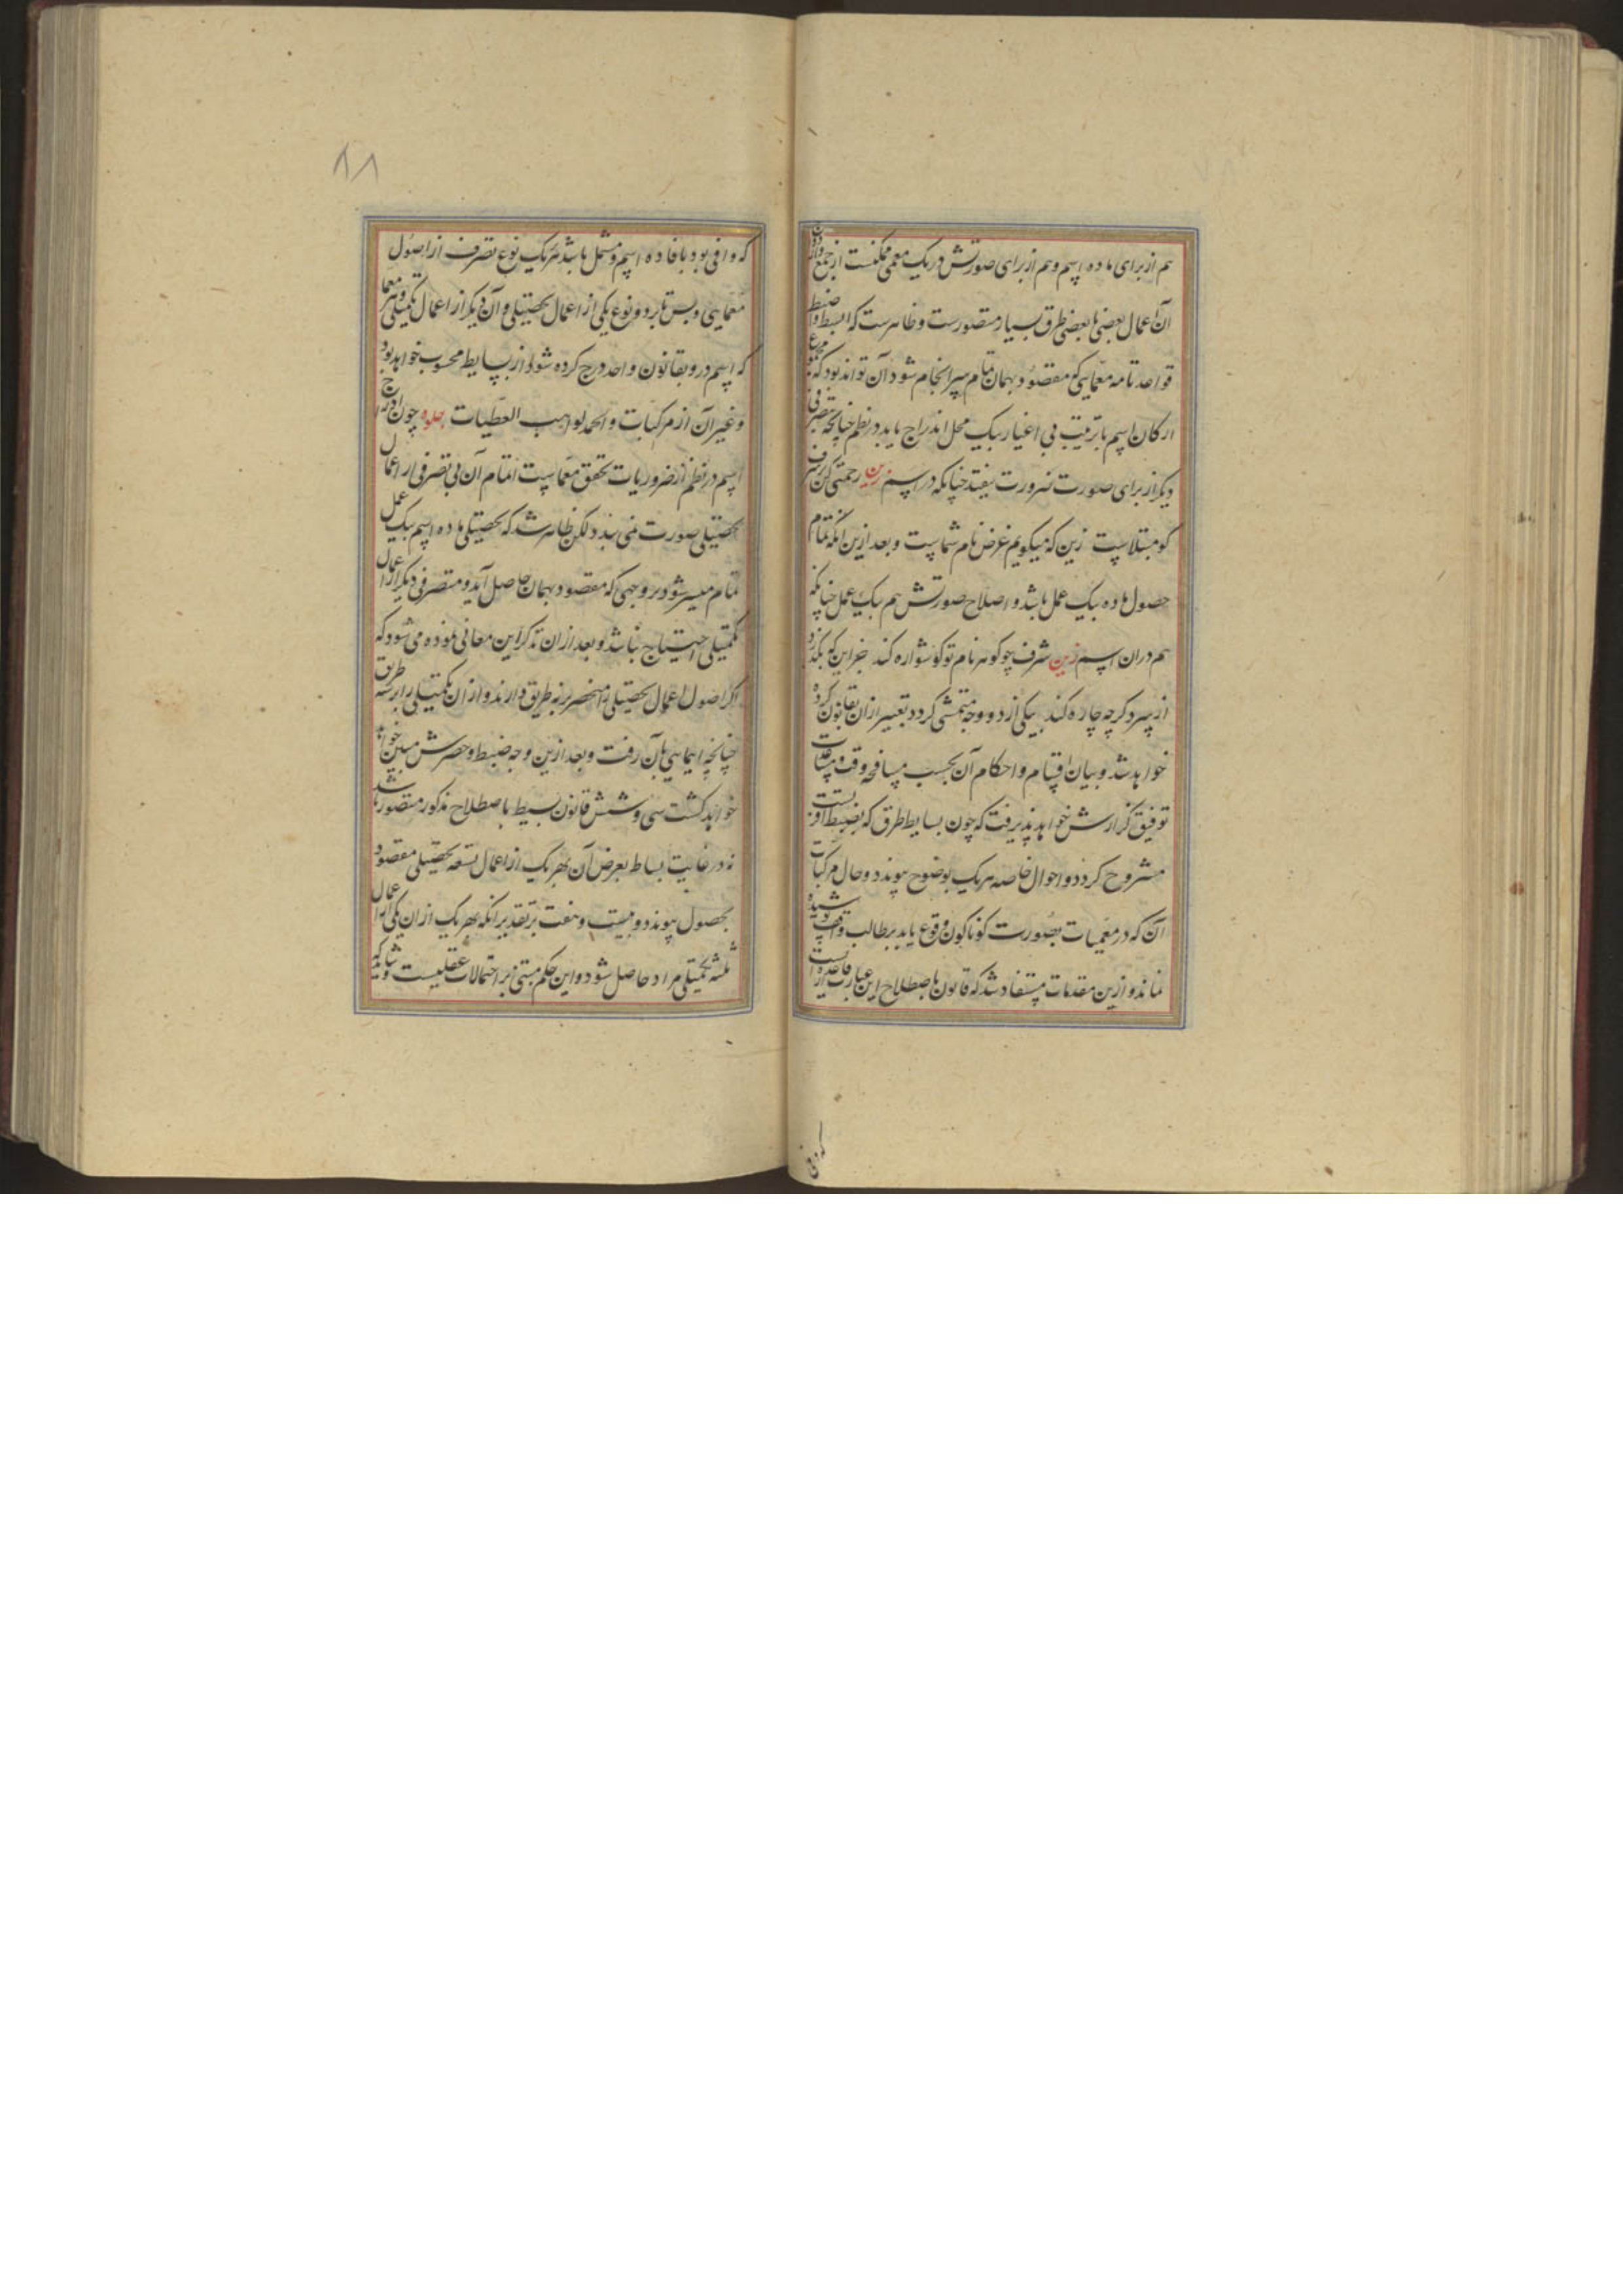 هم از برای ماده اسم و هم از برای صورتش در یک معمی ممکنست از جمع
آن اعمال بعضی با بعضی طرق بسیار متصورست و ظاهرست که ابسط و اضبط
قواعد تامه معمایی که مقصود بهمان تمام سرانجام شود آن تواند بود که
ارکان اسم با ترتیب بی اغیار بیک محل اندراج یابد در نظم چنانچه تصرفی
دیگر از برای صورت ضرورت نیفتد چنانکه در اسم زین رحمتی کن شرف
کو مبتلاست زین که میگویم غرض نام شماست و بعد ازین آنکه تمام
حصول ماده بیک عمل باشد و اصلاح صورتش هم بیک عمل چنانکه
هم در ان اسم زین شرف چو گوهر نام تو گوشواره کند جز این که بگذرد
از سر دگر چه چاره کند بیکی از دو وجه متمشی گردد تعبیر از ان بقانون کرده
خواهد شد و بیان اقسام و احکام آن بحسب مسافحه وقت و مساعدت
توفیق گزارش خواهد پذیرفت که چون بسایط طرق که بضبط او
مشروح گردد و احوال خاصه هر یک بوضوح پیوندد و حال مرکبات
آن که در معمیات بصورت گوناگون وقوع یابد بر طالب واقف پوشیده
نماند و ازین مقدمات مستفاد شد که قانون باصطلاح این عبارت از قاعده ایست
که وافی
که وافی بود بافاده اسم و مشمل باشد بر یک نوع تصرف از اصول
معمایی و بس تا بر دو نوع یکی از اعمال تحصیلی و آن دیگر از اعمال تکمیلی و هر معما
که اسم درو بقانون واحد درج کرده شود از بسایط محسوب خواهد بود
و غیر آن از مرکبات و الحمد لواهب العطیات جلوه چون ادراج
اسم در نظم از ضروریات تحقق معماست اتمام آن بی تصرفی از اعمال
تحصیلی صورت نمی بندد لکن ظاهر شد که تحصیلی ماده اسم بیک عمل
تمام میسر شود بر وجهی که مقصود بهمان حاصل آید و متصرفی دیگر از اعمال
تکمیلی احتیاج نباشد و بعد از ان تذکر این معانی نموده می شود که
اگر اصول اعمال تحصیلی را منحصر بر نه طریق دارند و از ان تکمیلی را بر سه طریق
چنانچه ایمایی بآن رفت و بعد ازین وجه ضبط و حصرش مبین خواهد
خواهد گشت سی و شش قانون بسیط باصطلاح مذکور متصور باشد
نه در غایت بساط بعرض آن بهر یک از اعمال تسعه تحصیلی مقصود
بحصول پیوندد و بیست و هفت بر تقدیر انکه بهر یک از ان یکی از اعمال
ثلثه تکمیلی مراد حاصل شود و این حکم مبتنی بر احتمالات عقلیست و شاید که